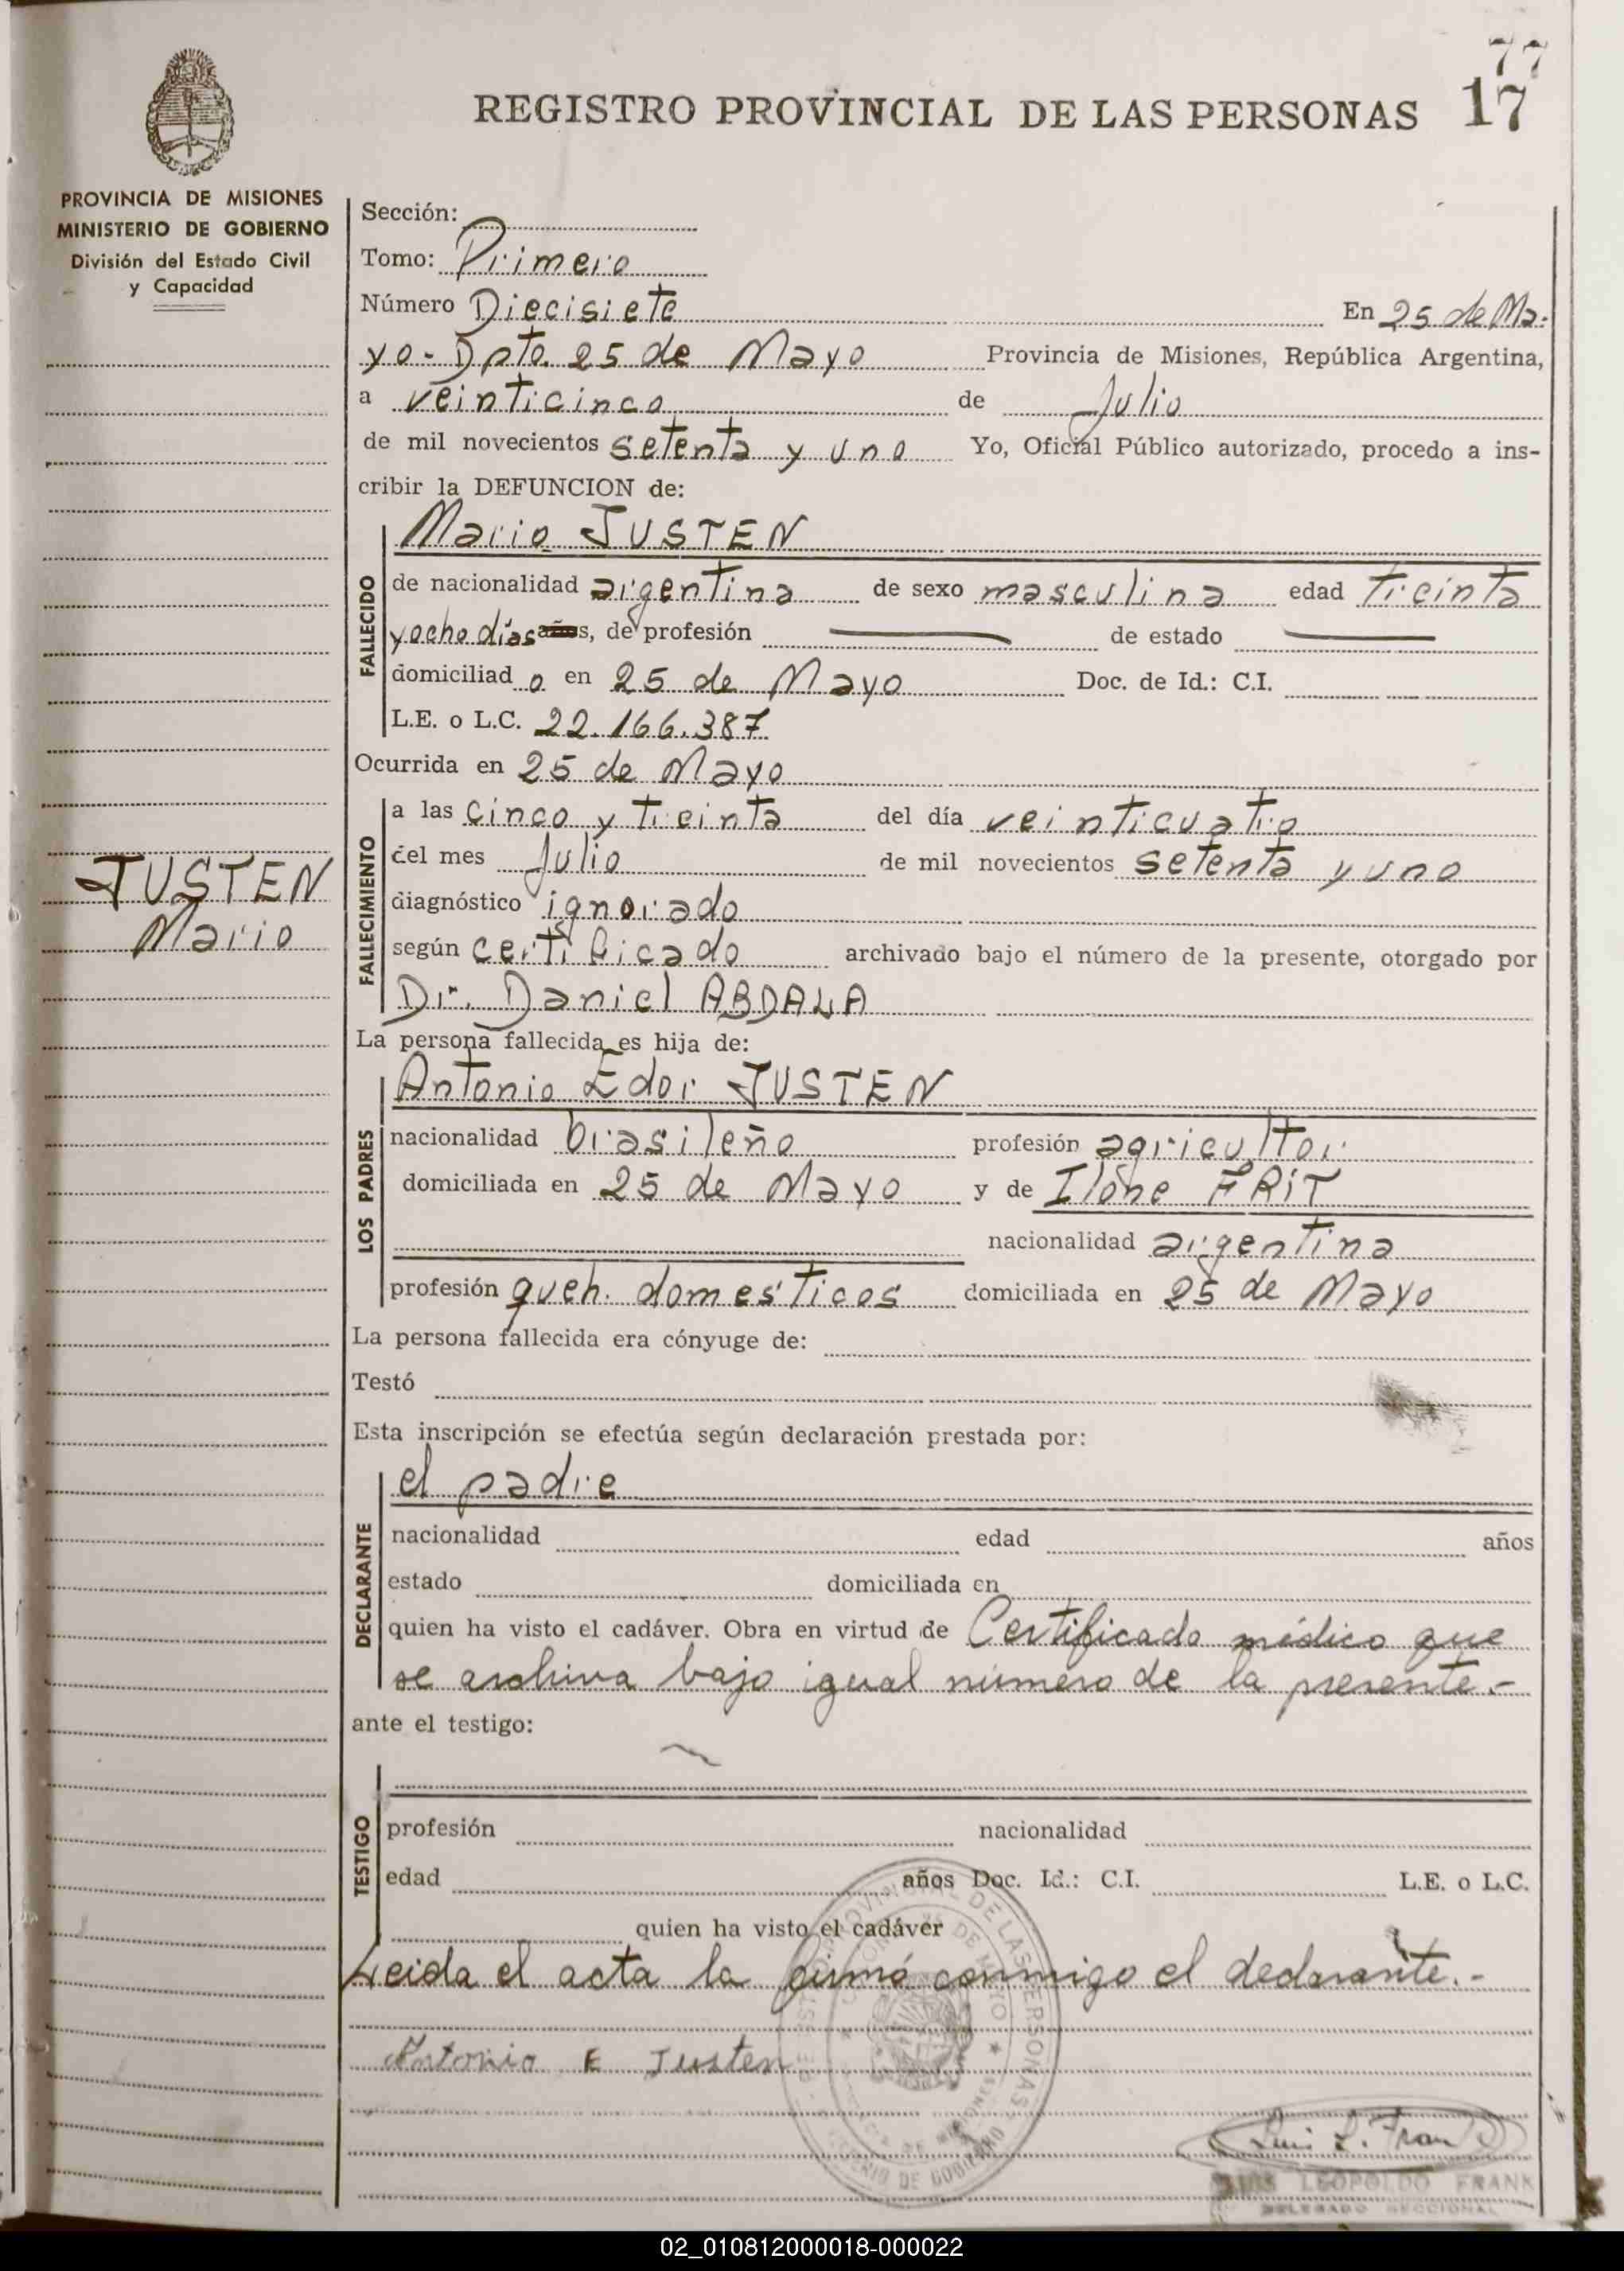 77
REGISTRO PROVINCIAL DE LAS PERSONAS 17
PROVINCIA DE MISIONES
MINISTERIO DE GOBIERNO
División del Estado Civil
y Capacidad
Sección:
Tomo: Primero
Número Diecisiete En 25 de Ma-
yo - Dpto. 25 de Mayo Provincia de Misiones, República Argentina,
a veinticinco de Julio
de mil novecientos setenta y uno Yo, Oficial Público autorizado, procedo a ins-
cribir la DEFUNCION de:
Mario JUSTEN
FALLECIDO
de nacionalidad argentina de sexo masculina edad treinta
y ocho días años, de profesión de estado
domiciliad o en 25 de Mayo Doc. de Id.: C.I.
L.E. o L.C. 22.166.387
Ocurrida en 25 de Mayo
FALLECIMIENTO
a las cinco y treinta del día veinticuatro
del mes Julio de mil novecientos setenta y uno
diagnóstico ignorado
según certificado archivado bajo el número de la presente, otorgado por
Dr. Daniel ABDALA
JUSTEN
Mario
La persona fallecida es hija de:
LOS PADRES
Antonio Edor JUSTEN
nacionalidad brasileño profesión agricultor
domiciliada en 25 de Mayo y de Ilone FRIT
nacionalidad argentina
profesión queh. domesticos domiciliada en 25 de Mayo
La persona fallecida era cónyuge de:
Testó
Esta inscripción se efectúa según declaración prestada por:
DECLARANTE
el padre
nacionalidad edad años
estado domiciliada en
quien ha visto el cadáver. Obra en virtud de Certificado médico que
se archiva bajo igual número de la presente.-
ante el testigo:
TESTIGO
profesión nacionalidad
edad años Doc. Id.: C.I. L.E. o L.C.
quien ha visto el cadáver
Leida el acta la firmó conmigo el declarante.-
Antonio E Justen
Luis L. Frank
LUIS LEOPOLDO FRANK
DELEGADO SECCIONAL
02_010812000018-000022